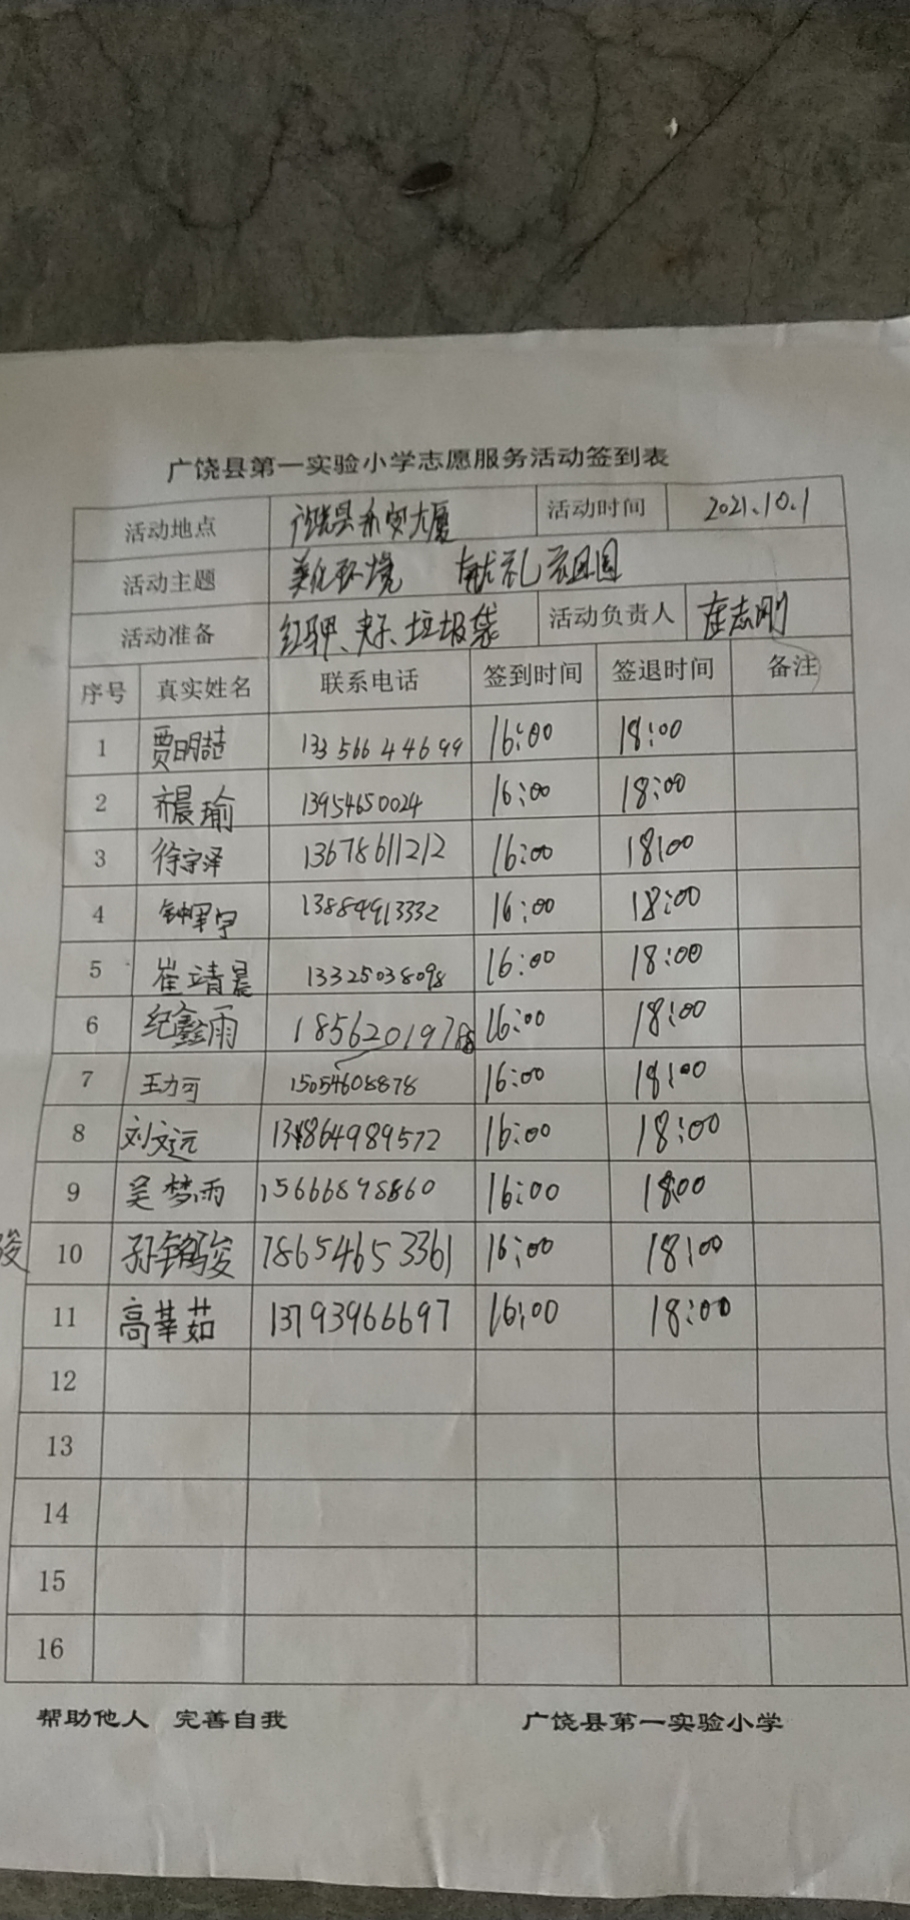 广饶县第一实验小学志愿服务活动签到表
活动地点 广饶县 大厦 活动时间 2021.10.1
活动主题 美化环境 献礼祖国
活动准备 红马甲、夹子、垃圾袋 活动负责人 志刚
序号 真实姓名 联系电话 签到时间 签退时间 备注
1 贾明喆 13356644699 16:00 18:00
2 晨瑜 13954650024 16:00 18:00
3 徐宇泽 13678611212 16:00 18:00
4 13884913332 16:00 18:00
5 崔靖晨 13325038098 16:00 18:00
6 纪鑫雨 16:00 18:00
7 王力可 15054608878 16:00 18:00
8 刘文远 16:00 18:00
9 吴梦雨 16:00 18:00
骏 10 孙铭骏 78654653361 16:00 18:00
11 高莘茹 13793966697 16:00 18:00
12
13
14
15
16
帮助他人 完善自我 广饶县第一实验小学